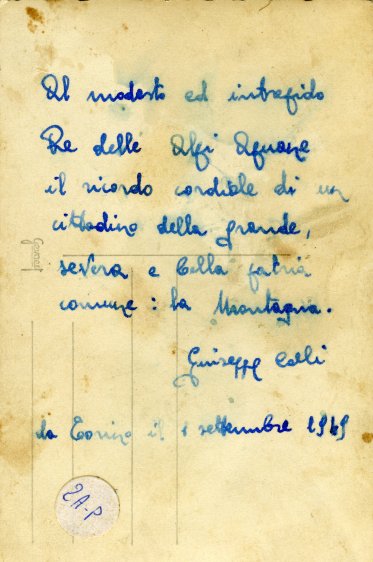 Al modesto ed intrepido
Re delle Alpi Apuane
il ricordo cordiale di un
cittadino della grande,
severa e bella patria
comune: la Montagna.
Giuseppe
da Torino il 1 settembre 1949
2A-P
Gevaert